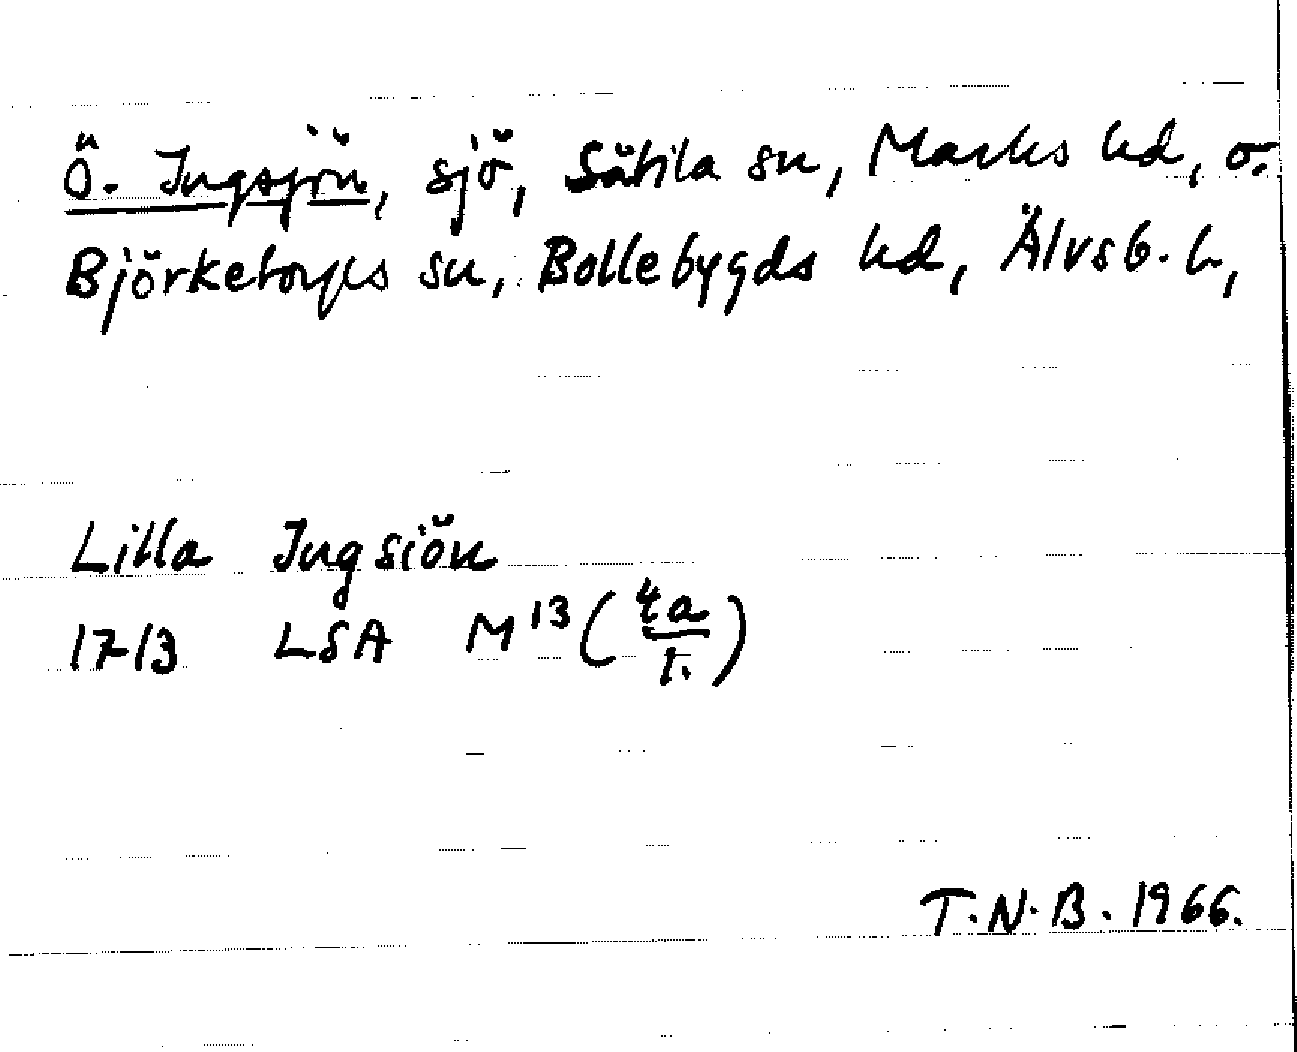 Ö. Ingsjön, sjö, Sätila sn, Marks hd, o.
Björketorps sn, Bollebygds hd, Älvsb. l.,
Lilla Ingsiön
1713 LSA M¹³ (ta/1.)
T.N.B. 1966.